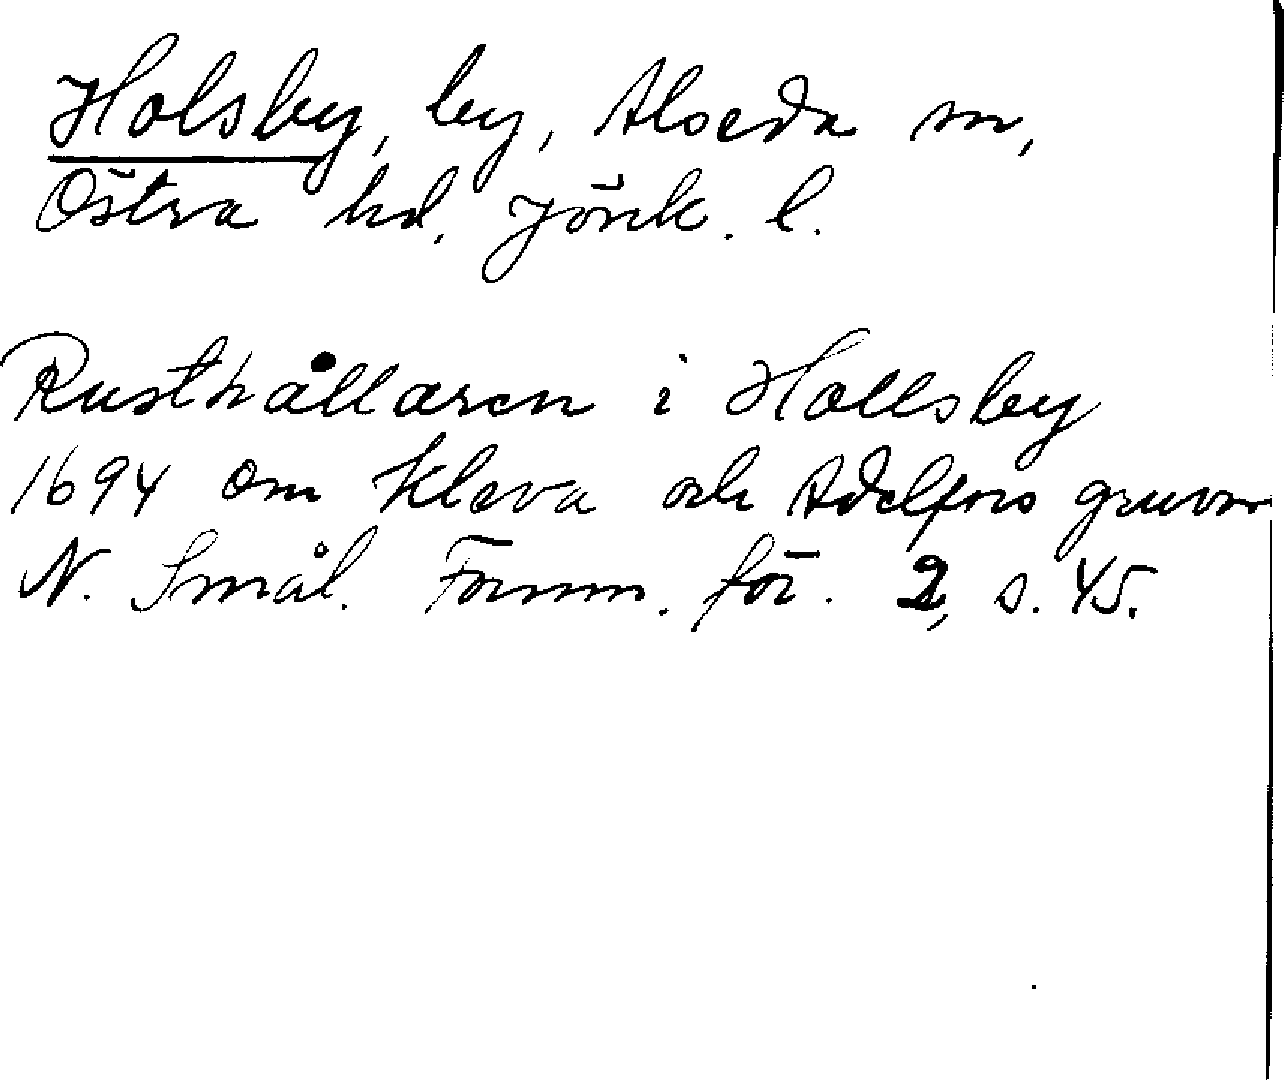 Holsby, by, Alseda sn,
Östra hd. Jönk. l.
Rusthållaren i Hollsby
1694 om Kleva och Adelfors gruvor
N. Smål. Fornm. för. 2, s. 45.